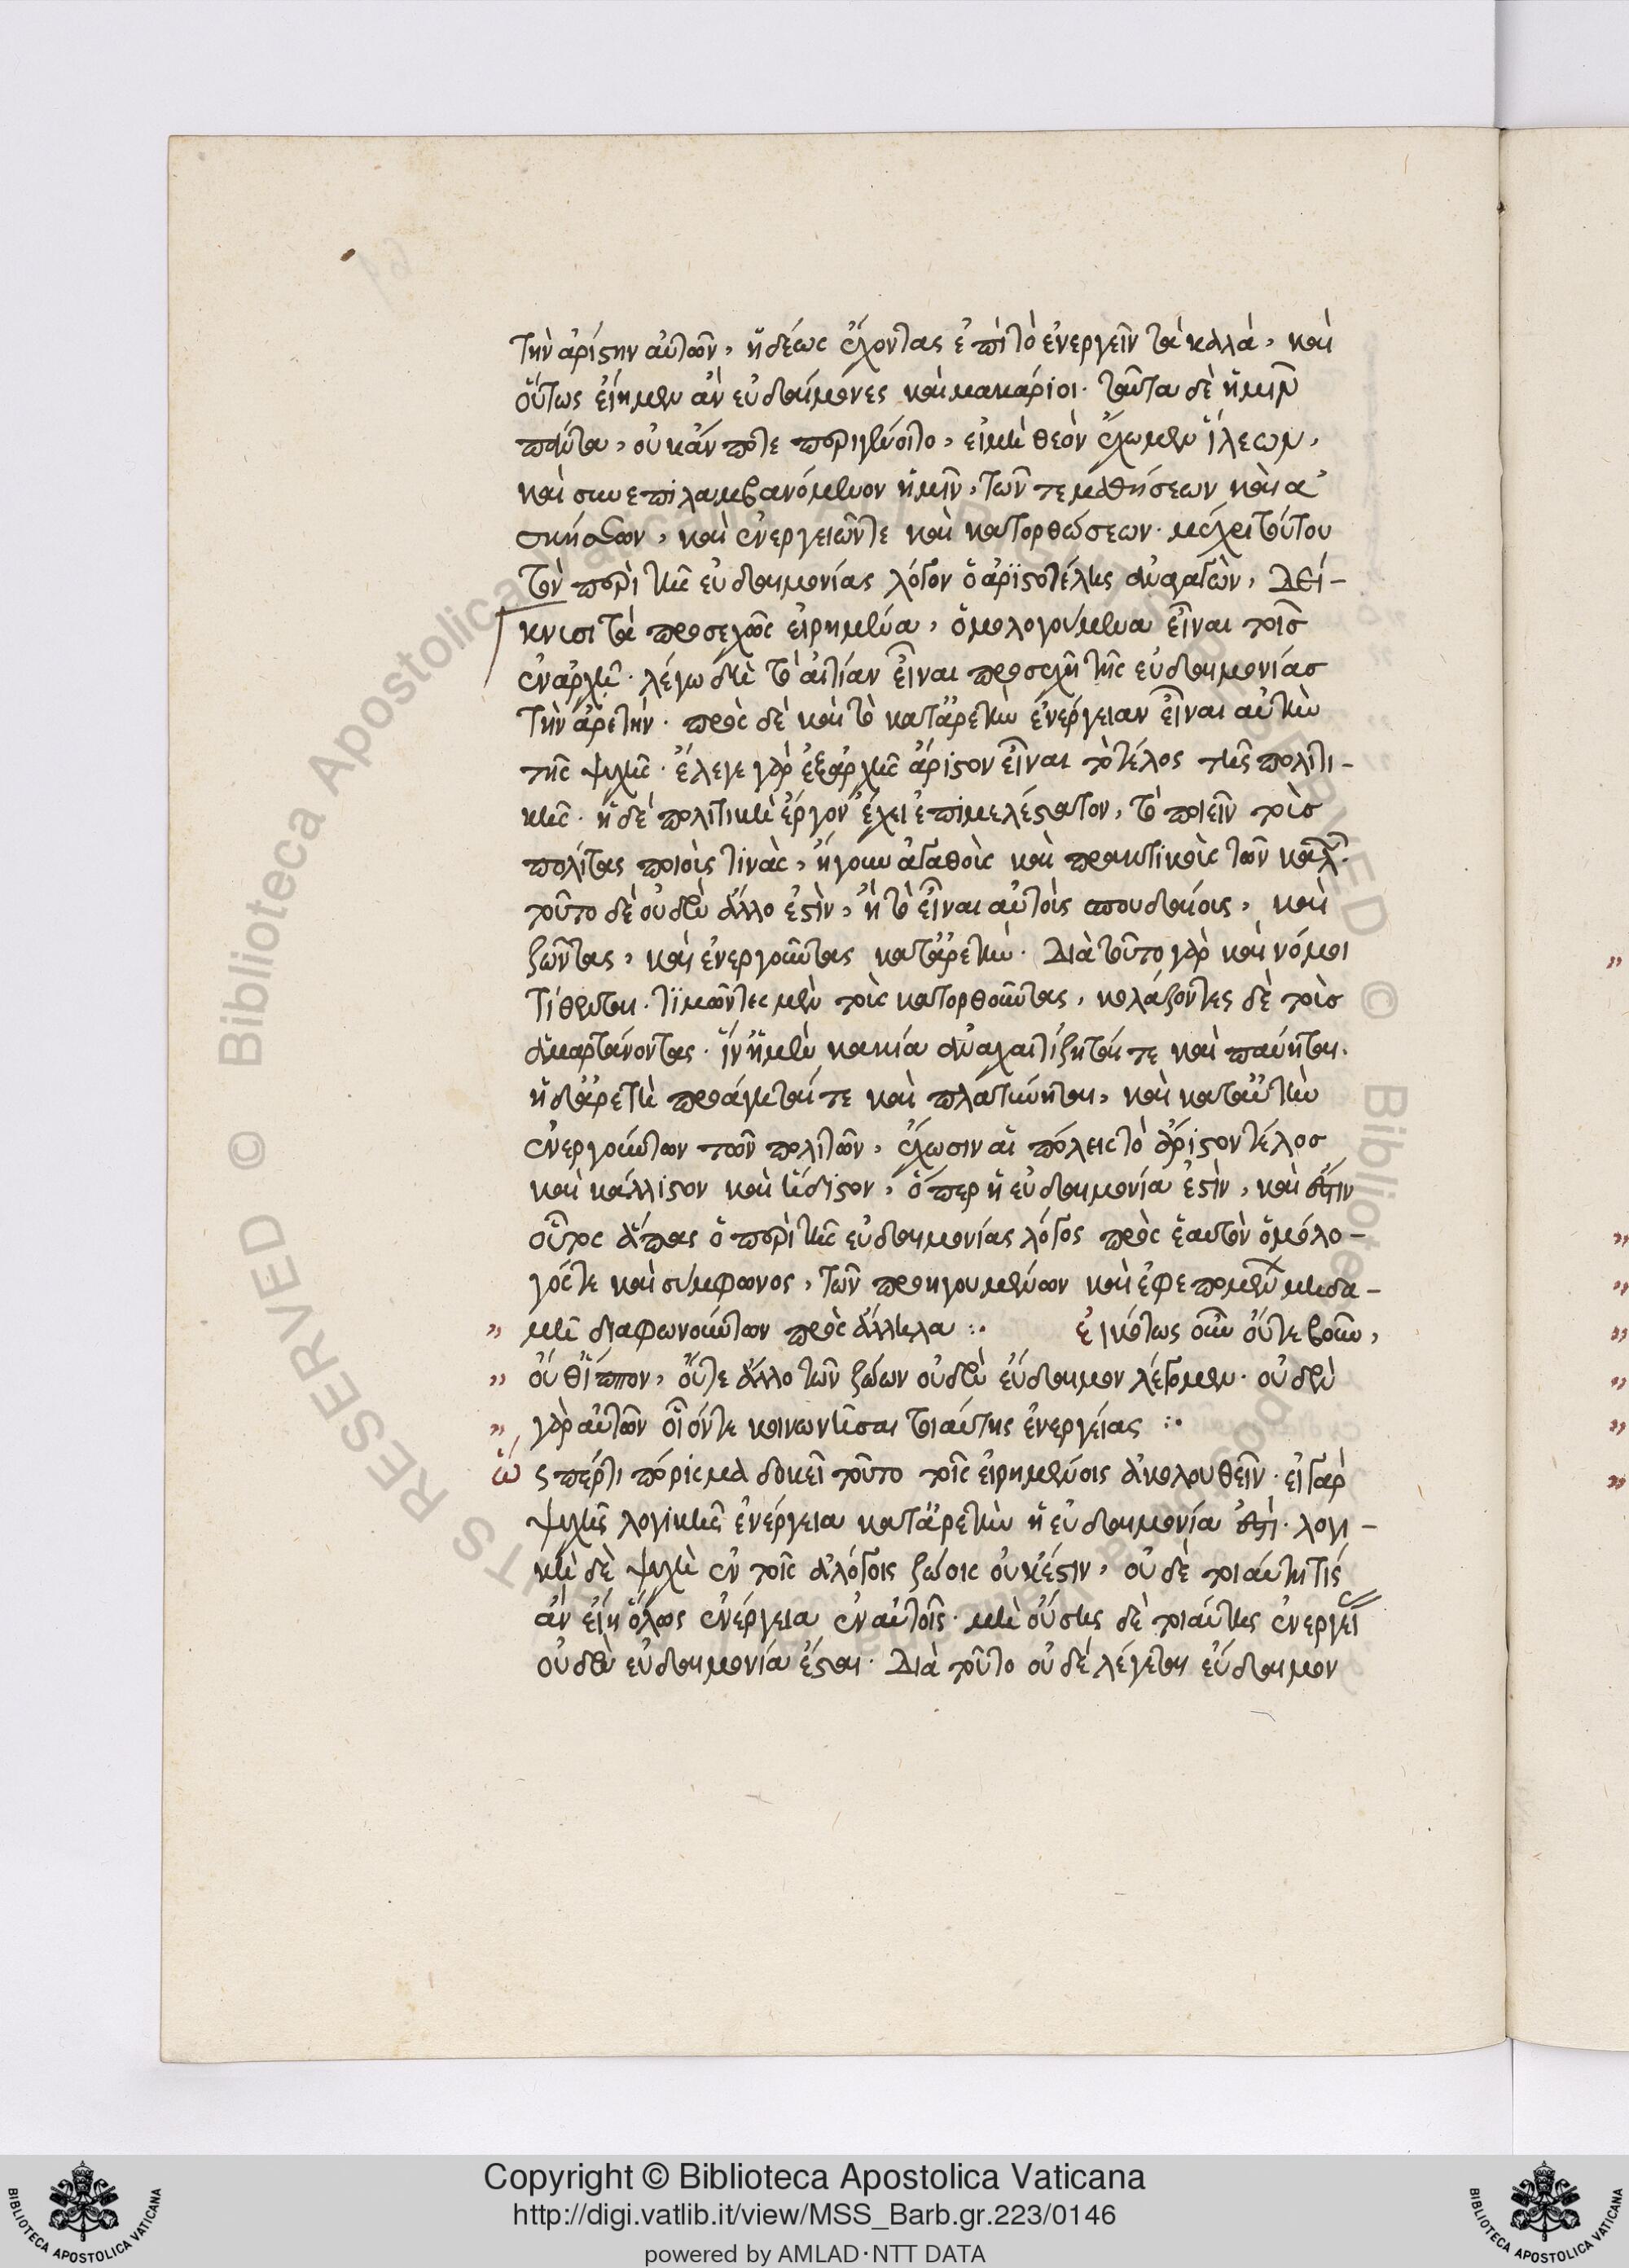 τὴν ἀρίστην αὐτῶν, ἡδέως ἔχοντας ἐπὶ τὸ ἐνεργεῖν τὰ καλά, καὶ
οὕτως εἴημεν ἂν εὐδαίμονες καὶ μακάριοι· ταῦτα δὲ ἡμῖν
πάντα, οὐκ ἄν ποτε περιγένοιτο, εἰ μὴ θεὸν ἔχωμεν ἵλεων,
καὶ συνεπιλαμβανόμενον ἡμῖν, τῶν τε μαθήσεων καὶ ἀ
σκήσεων, καὶ ἐνεργειῶν τε καὶ κατορθώσεων· μέχρι τούτου
τὸν περὶ τῆς εὐδαιμονίας λόγον ὁ ἀριστοτέλης ἀναγαγὼν, δεί-
κνυσι τὰ προσεχῶς εἰρημένα, ὁμολογούμενα εἶναι τοῖς
ἐν ἀρχῇ· λέγω δὴ τὸ αἰτίαν εἶναι προσεχῆ τῆς εὐδαιμονίας
τὴν ἀρετήν· πρὸς δὲ καὶ τὸ κατ' ἀρετὴν ἐνέργειαν εἶναι αὐτὴν
τῆς ψυχῆς· ἔλεγε γὰρ ἐξ ἀρχῆς ἄριστον εἶναι τὸ τέλος τῆς πολιτι-
κῆς· ἡ δὲ πολιτικὴ ἔργον ἔχει ἐπιμελέστατον, τὸ ποιεῖν τοὺς
πολίτας ποιούς τινας, ἤγουν ἀγαθοὺς καὶ πρακτικοὺς τῶν καλῶν·
τοῦτο δὲ οὐδὲν ἄλλο ἐστὶν, ἢ τὸ εἶναι αὐτοὺς σπουδαίους, καὶ
ζῶντας, καὶ ἐνεργοῦντας κατ' ἀρετήν· Διὰ τοῦτο γὰρ καὶ νόμοι
τίθενται· τιμῶντες μὲν τοὺς κατορθοῦντας, κολάζοντες δὲ τοὺς
ἁμαρτάνοντας· ἵν' ἡ μὲν κακία ἀναχαιτίζηταί τε καὶ παύηται·
ἡ δ' ἀρετὴ προάγηταί τε καὶ πλατύνηται, καὶ κατ' αὐτὴν
ἐνεργούντων τῶν πολιτῶν, ἔχωσιν αἱ πόλεις τὸ ἄριστον τέλος
καὶ κάλλιστον καὶ ἥδιστον, ὅπερ ἡ εὐδαιμονία ἐστὶν, καὶ ἔστιν
οὗτος ἅπας ὁ περὶ τῆς εὐδαιμονίας λόγος πρὸς ἑαυτὸν ὁμόλο-
γός τε καὶ σύμφωνος, τῶν προηγουμένων καὶ ἐφεπομένων μηδα-
μῇ διαφωνούντων πρὸς ἄλληλα :· εἰκότως οὖν οὔτε βοῦν,
οὔθ' ἵππον, οὔτε ἄλλο τῶν ζώων οὐδὲν εὔδαιμον λέγομεν· οὐδὲν
γὰρ αὐτῶν οἷόν τε κοινωνῆσαι τοιαύτης ἐνεργείας :·
ὥσπερ τι πόρισμα δοκεῖ τοῦτο τοῖς εἰρημένοις ἀκολουθεῖν· εἰ γὰρ
ψυχῆς λογικῆς ἐνέργεια κατ' ἀρετὴν ἡ εὐδαιμονία ἐστί· λογι-
κὴ δὲ ψυχὴ ἐν τοῖς ἀλόγοις ζώοις οὐκ ἔστιν, οὐδὲ τοιαύτη τίς
ἂν εἴη ὅλως ἐνέργεια ἐν αὐτοῖς· μὴ οὔσης δὲ τοιαύτης ἐνεργείας
οὐδὲν εὐδαιμονία ἔσται· Διὰ τοῦτο οὐδὲ λέγεται εὔδαιμον
Copyright © Biblioteca Apostolica Vaticana
http://digi.vatlib.it/view/MSS_Barb.gr.223/0146
powered by AMLAD·NTT DATA